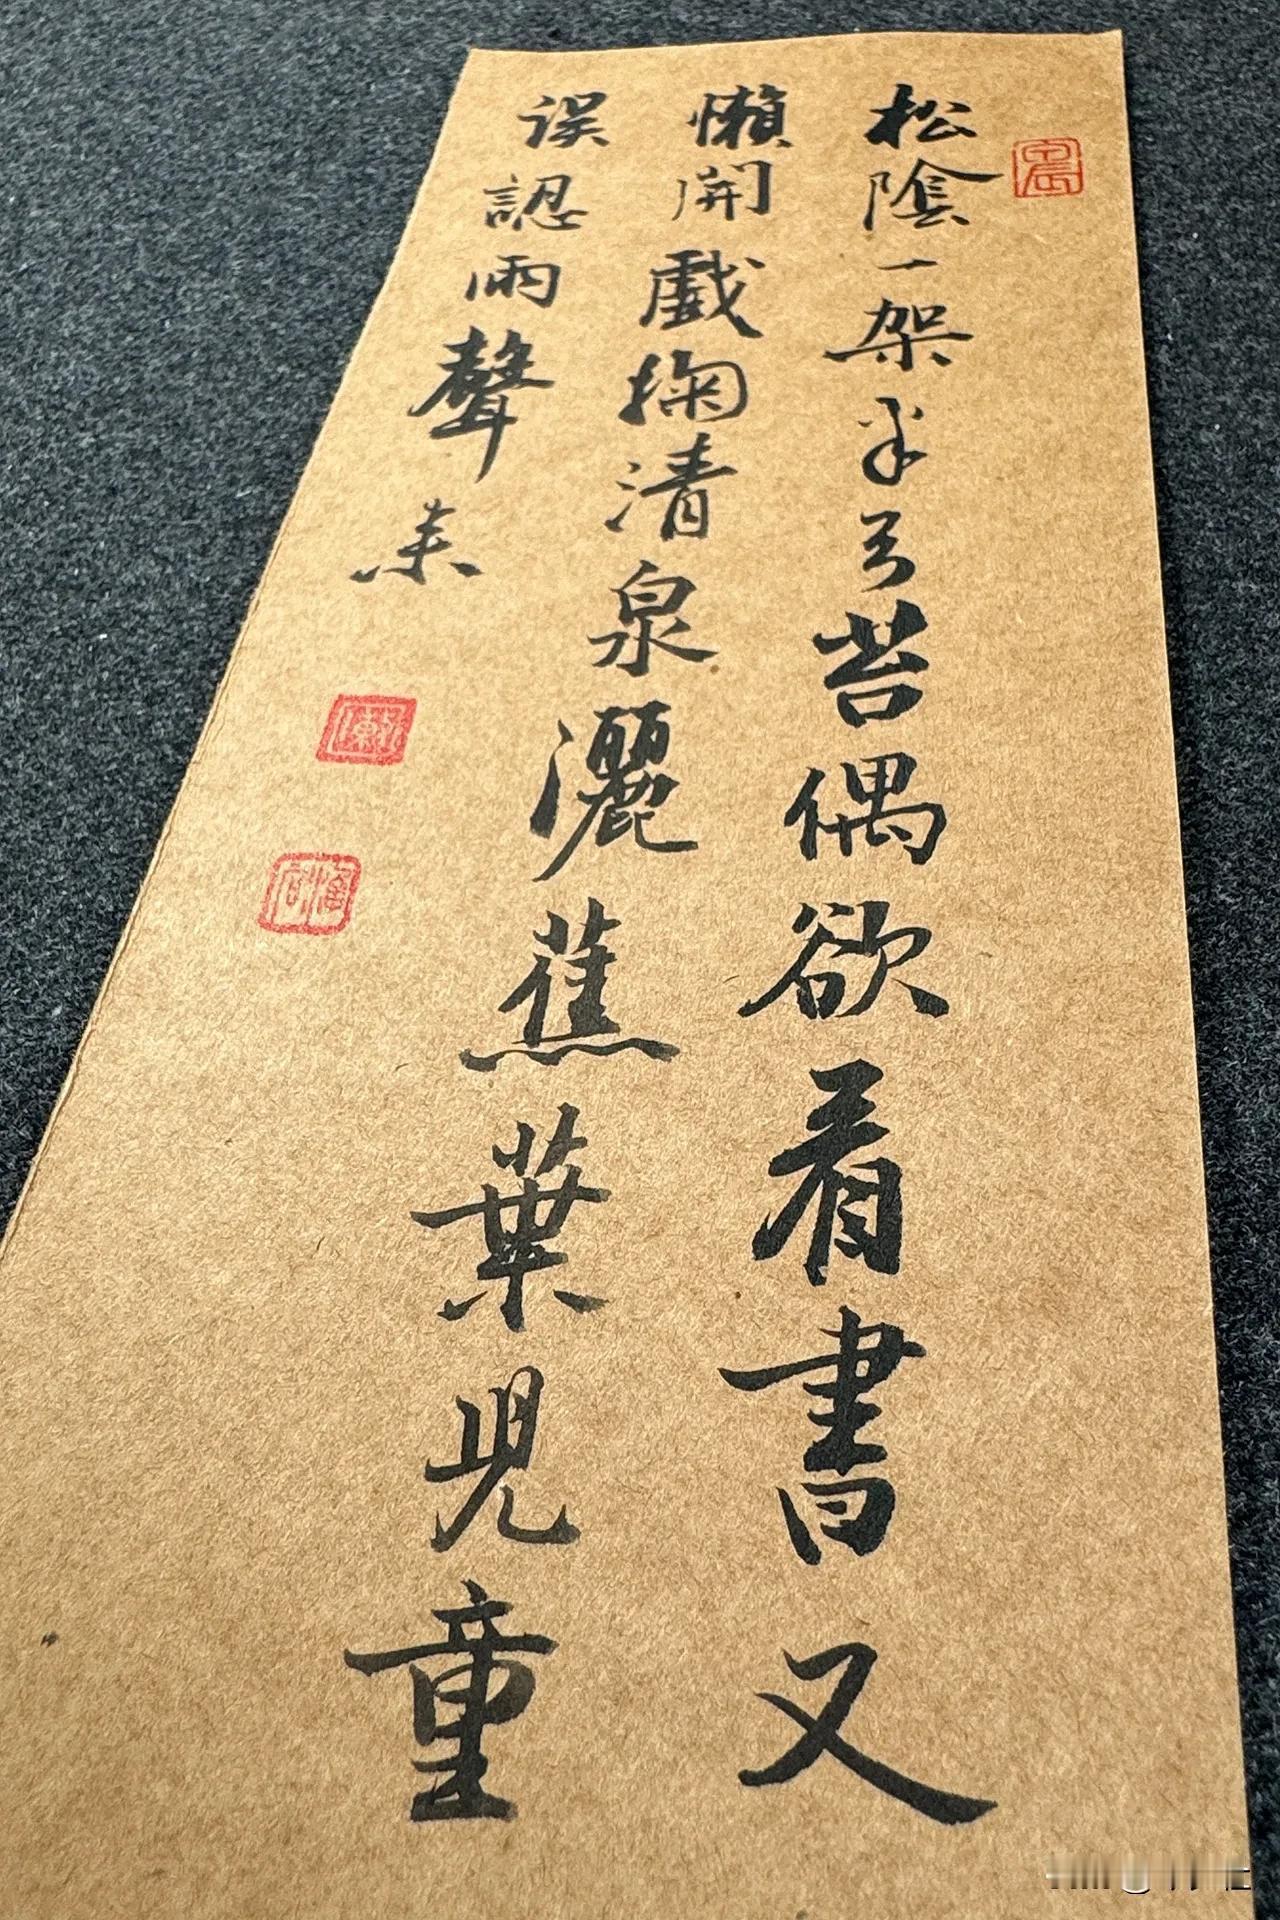 松陰一架半弓苔偶欲看書又
懶開戲掬清泉灑蕉葉児童
误認雨聲来